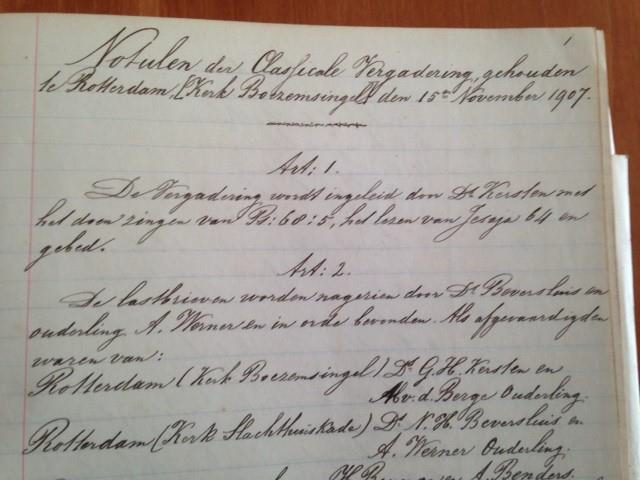 1
Notulen der Classicale Vergadering, gehouden
te Rotterdam, [Kerk Boezemsingel] den 15en November 1907.
Art: 1.
De Vergadering wordt ingeleid door Ds Kersten met
het doen zingen van Ps: 68:5, het lezen van Jesaja 64 en
gebed.
Art: 2.
De lastbrieven worden nagezien door Ds Beversluis en
ouderling A. Werner en in orde bevonden. Als afgevaardigden
waren van:
Rotterdam (Kerk Boezemsingel) Ds G. H. Kersten en
M v. d. Berge Ouderling.
Rotterdam (Kerk Slachthuiskade) Ds N. H. Beversluis en
A. Werner Ouderling.
A. Benders.